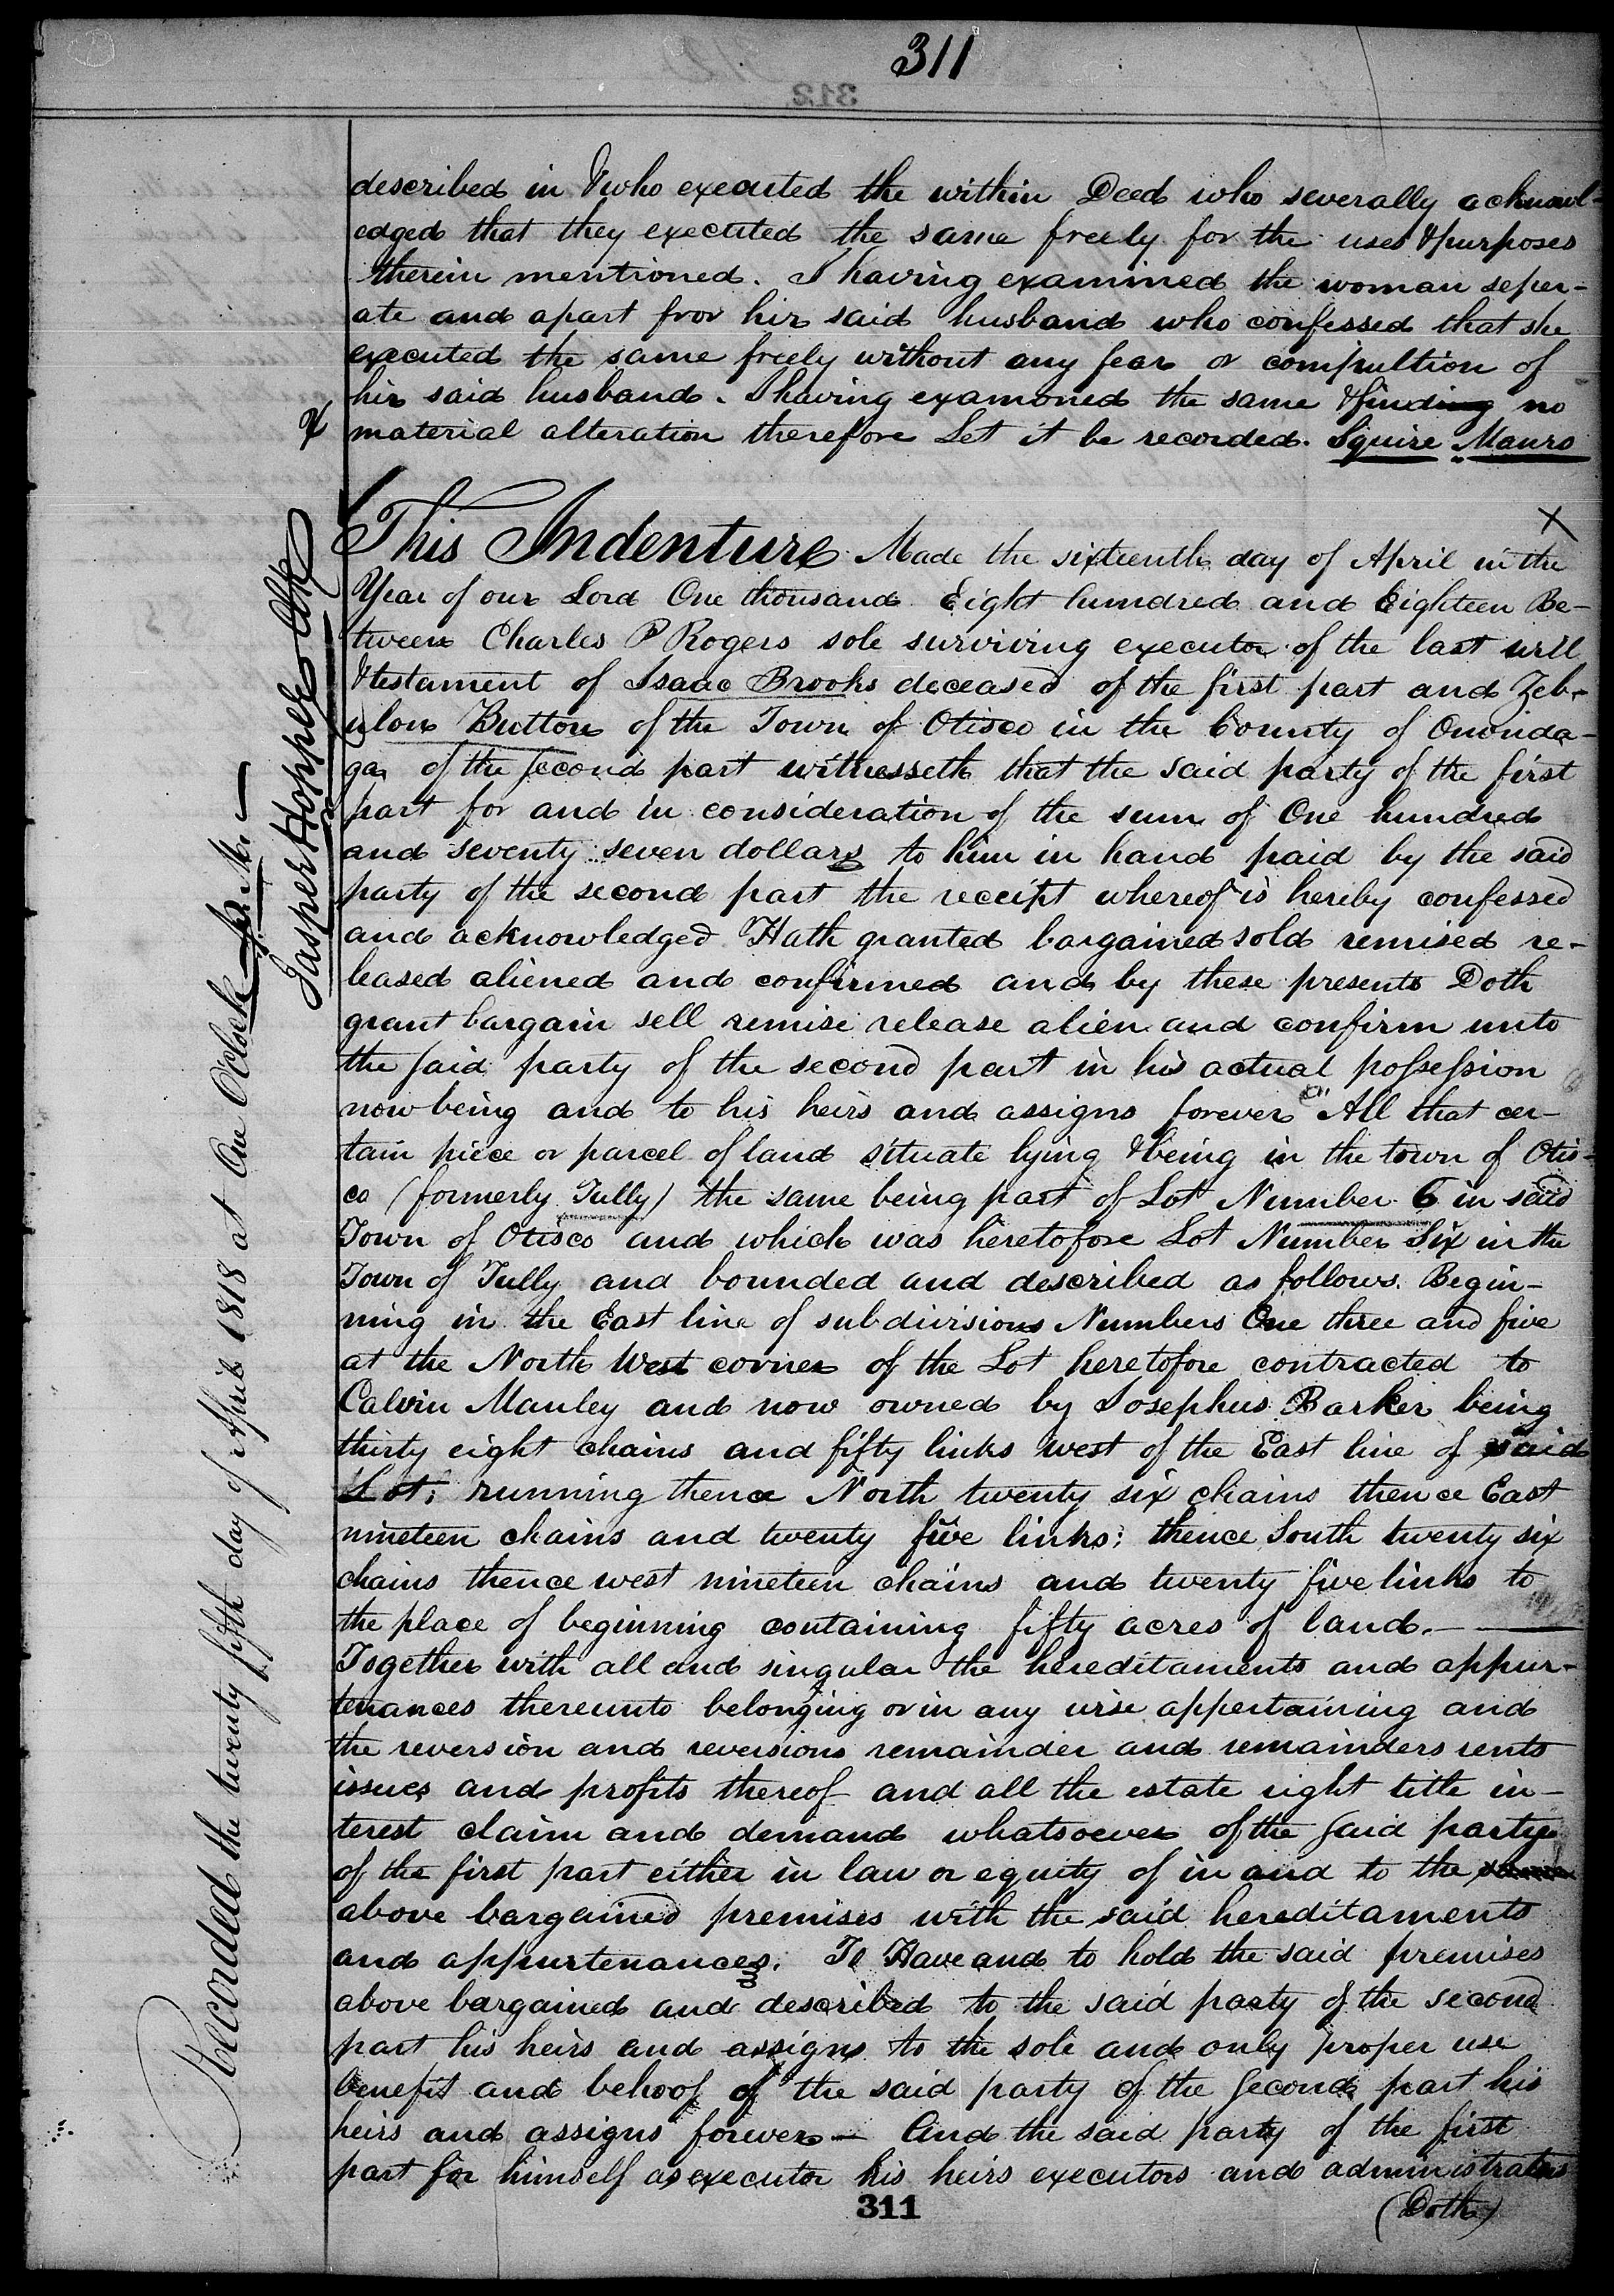 311
described in & who executed the within Deed who severally acknowl-
edged that they executed the same freely for the uses & purposes
therein mentioned. I having examined the woman seper-
ate and apart from hir said husband who confessed that she
executed the same freely without any fear or compultion of
hir said husband. I having examoned the same & finding no
material alteration therefore Let it be recorded. Squire Munro
This Indenture Made the sixteenth day of April in the
Year of our Lord One thousand Eight hundred and Eighteen Be-
tween Charles P Rogers sole surviving executor of the last will
& testament of Isaac Brooks deceased of the first part and Zeb-
ulon Button of the Town of Otisco in the County of Ononda-
ga of the second part witnesseth that the said party of the first
part for and in consideration of the sum of One hundred
and seventy seven dollars to him in hand paid by the said
party of the second part the receipt whereof is hereby confessed
and acknowledged Hath granted bargained sold remised re-
leased aliened and confirmed and by these presents Doth
grant bargain sell remise release alien and confirm unto
the said party of the second part in his actual possession
now being and to his heirs and assigns forever "All that cer-
tain piece or parcel of land situate lying & being in the town of Otis-
co (formerly Tully) the same being part of Lot Number 6 in said
Town of Otisco and which was heretofore Lot Number Six in the
Town of Tully and bounded and described as follows. Begin-
ning in the East line of subdivisions Numbers One three and five
at the North West corner of the Lot heretofore contracted to
Calvin Manley and now owned by Josephus Barker being
thirty eight chains and fifty links west of the East line of said
Lot; running thence North twenty six chains thence East
nineteen chains and twenty five links; thence South twenty six
chains thence west nineteen chains and twenty five links to
the place of beginning containing fifty acres of land.—
Together with all and singular the hereditaments and appur-
tenances thereunto belonging or in any wise appertaining and
the reversion and reversions remainder and remainders rents
issues and profits thereof and all the estate right title in-
terest claim and demand whatsoever of the said party
of the first part either in law or equity of in and to the
above bargained premises with the said hereditaments
and appurtenances. To Have and to hold the said premises
above bargained and described to the said party of the second
part his heirs and assigns to the sole and only proper use
benefit and behoof of the said party of the second part his
heirs and assigns forever — And the said party of the first
part for himself as executor his heirs executors and administrators
(Doth)
311
Recorded the twenty fifth day of April 1818 at One OClock P. M. —
Jasper Hopper Clk